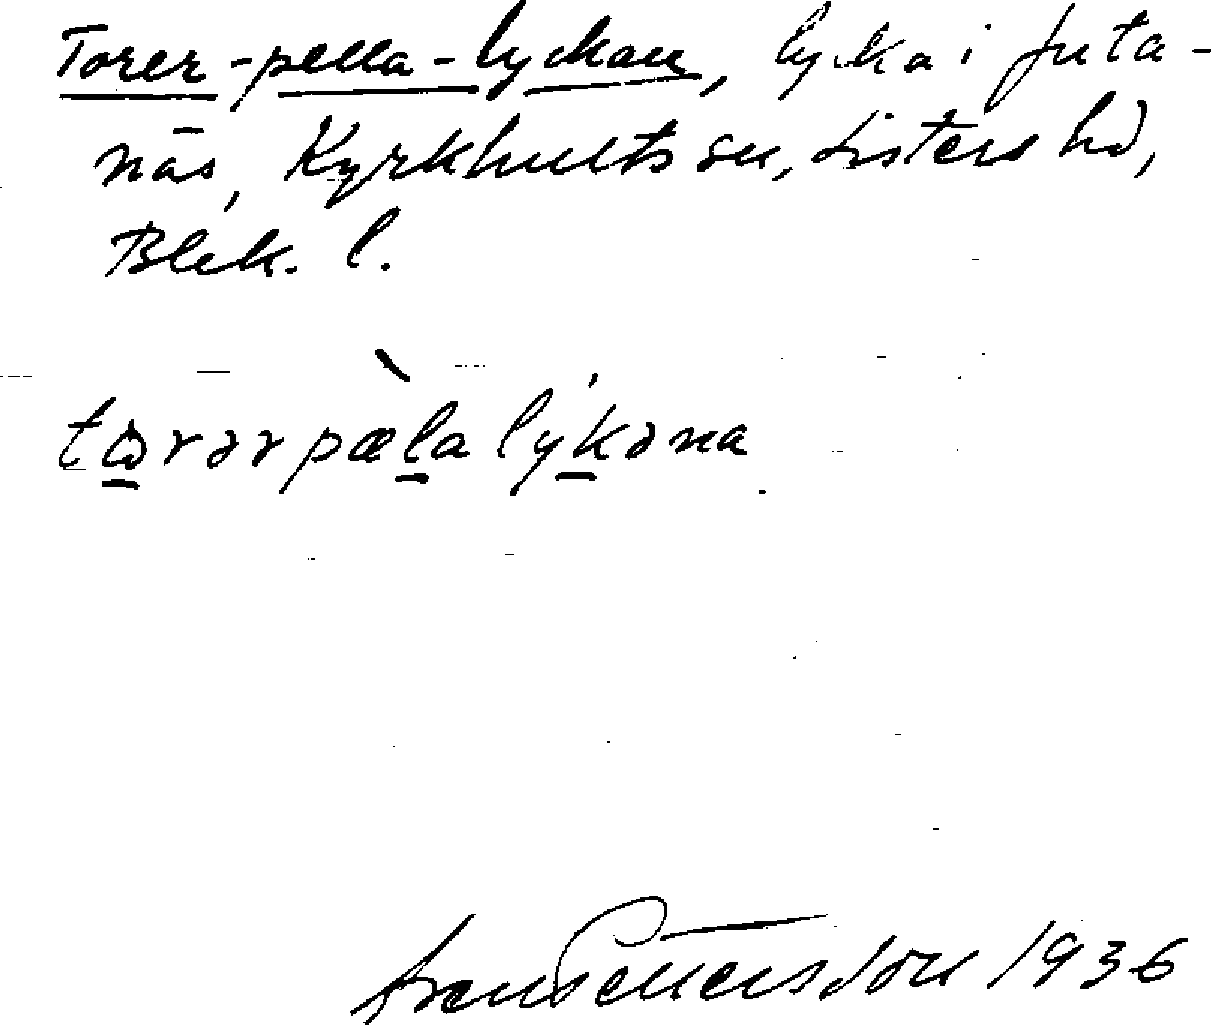 Torer-pella-lyckan, lycka i Juta-
näs, Kyrkhults sn, Listers hd,
Blek. l.
tɷrərpæ̀lalýkəna
Sven Pettersson 1936